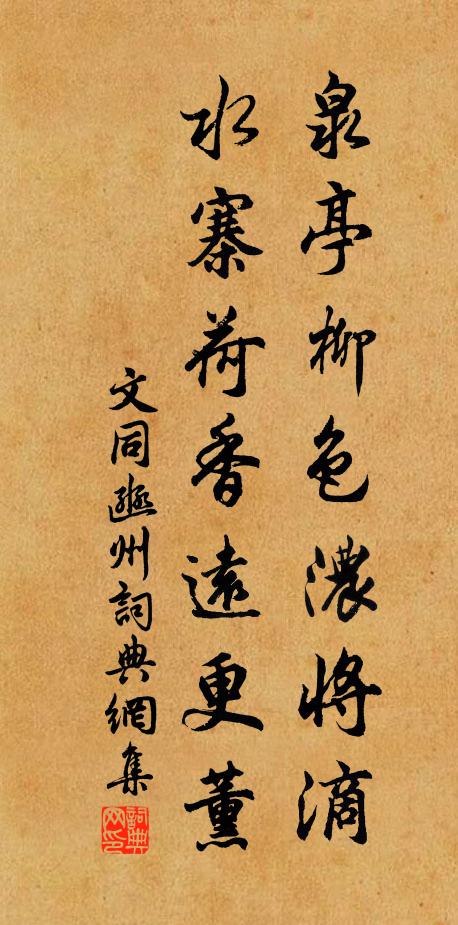 泉亭柳色濃將滴
水寨荷香遠更薰
文同州詞典網集
詞典网印